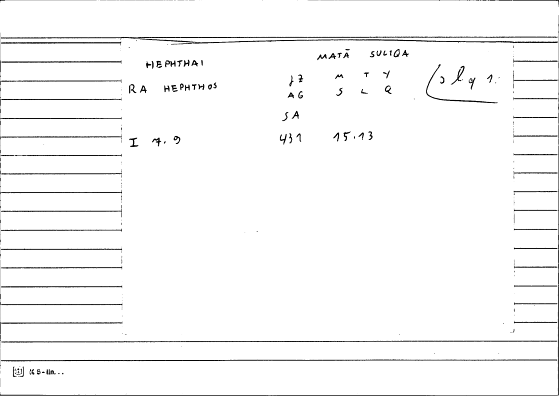 HEPHTHAI MATĀ SULIQA
RA HEPHTHOS JZ M T Y
AG S L Q
SA
I 7.9 431 15.13